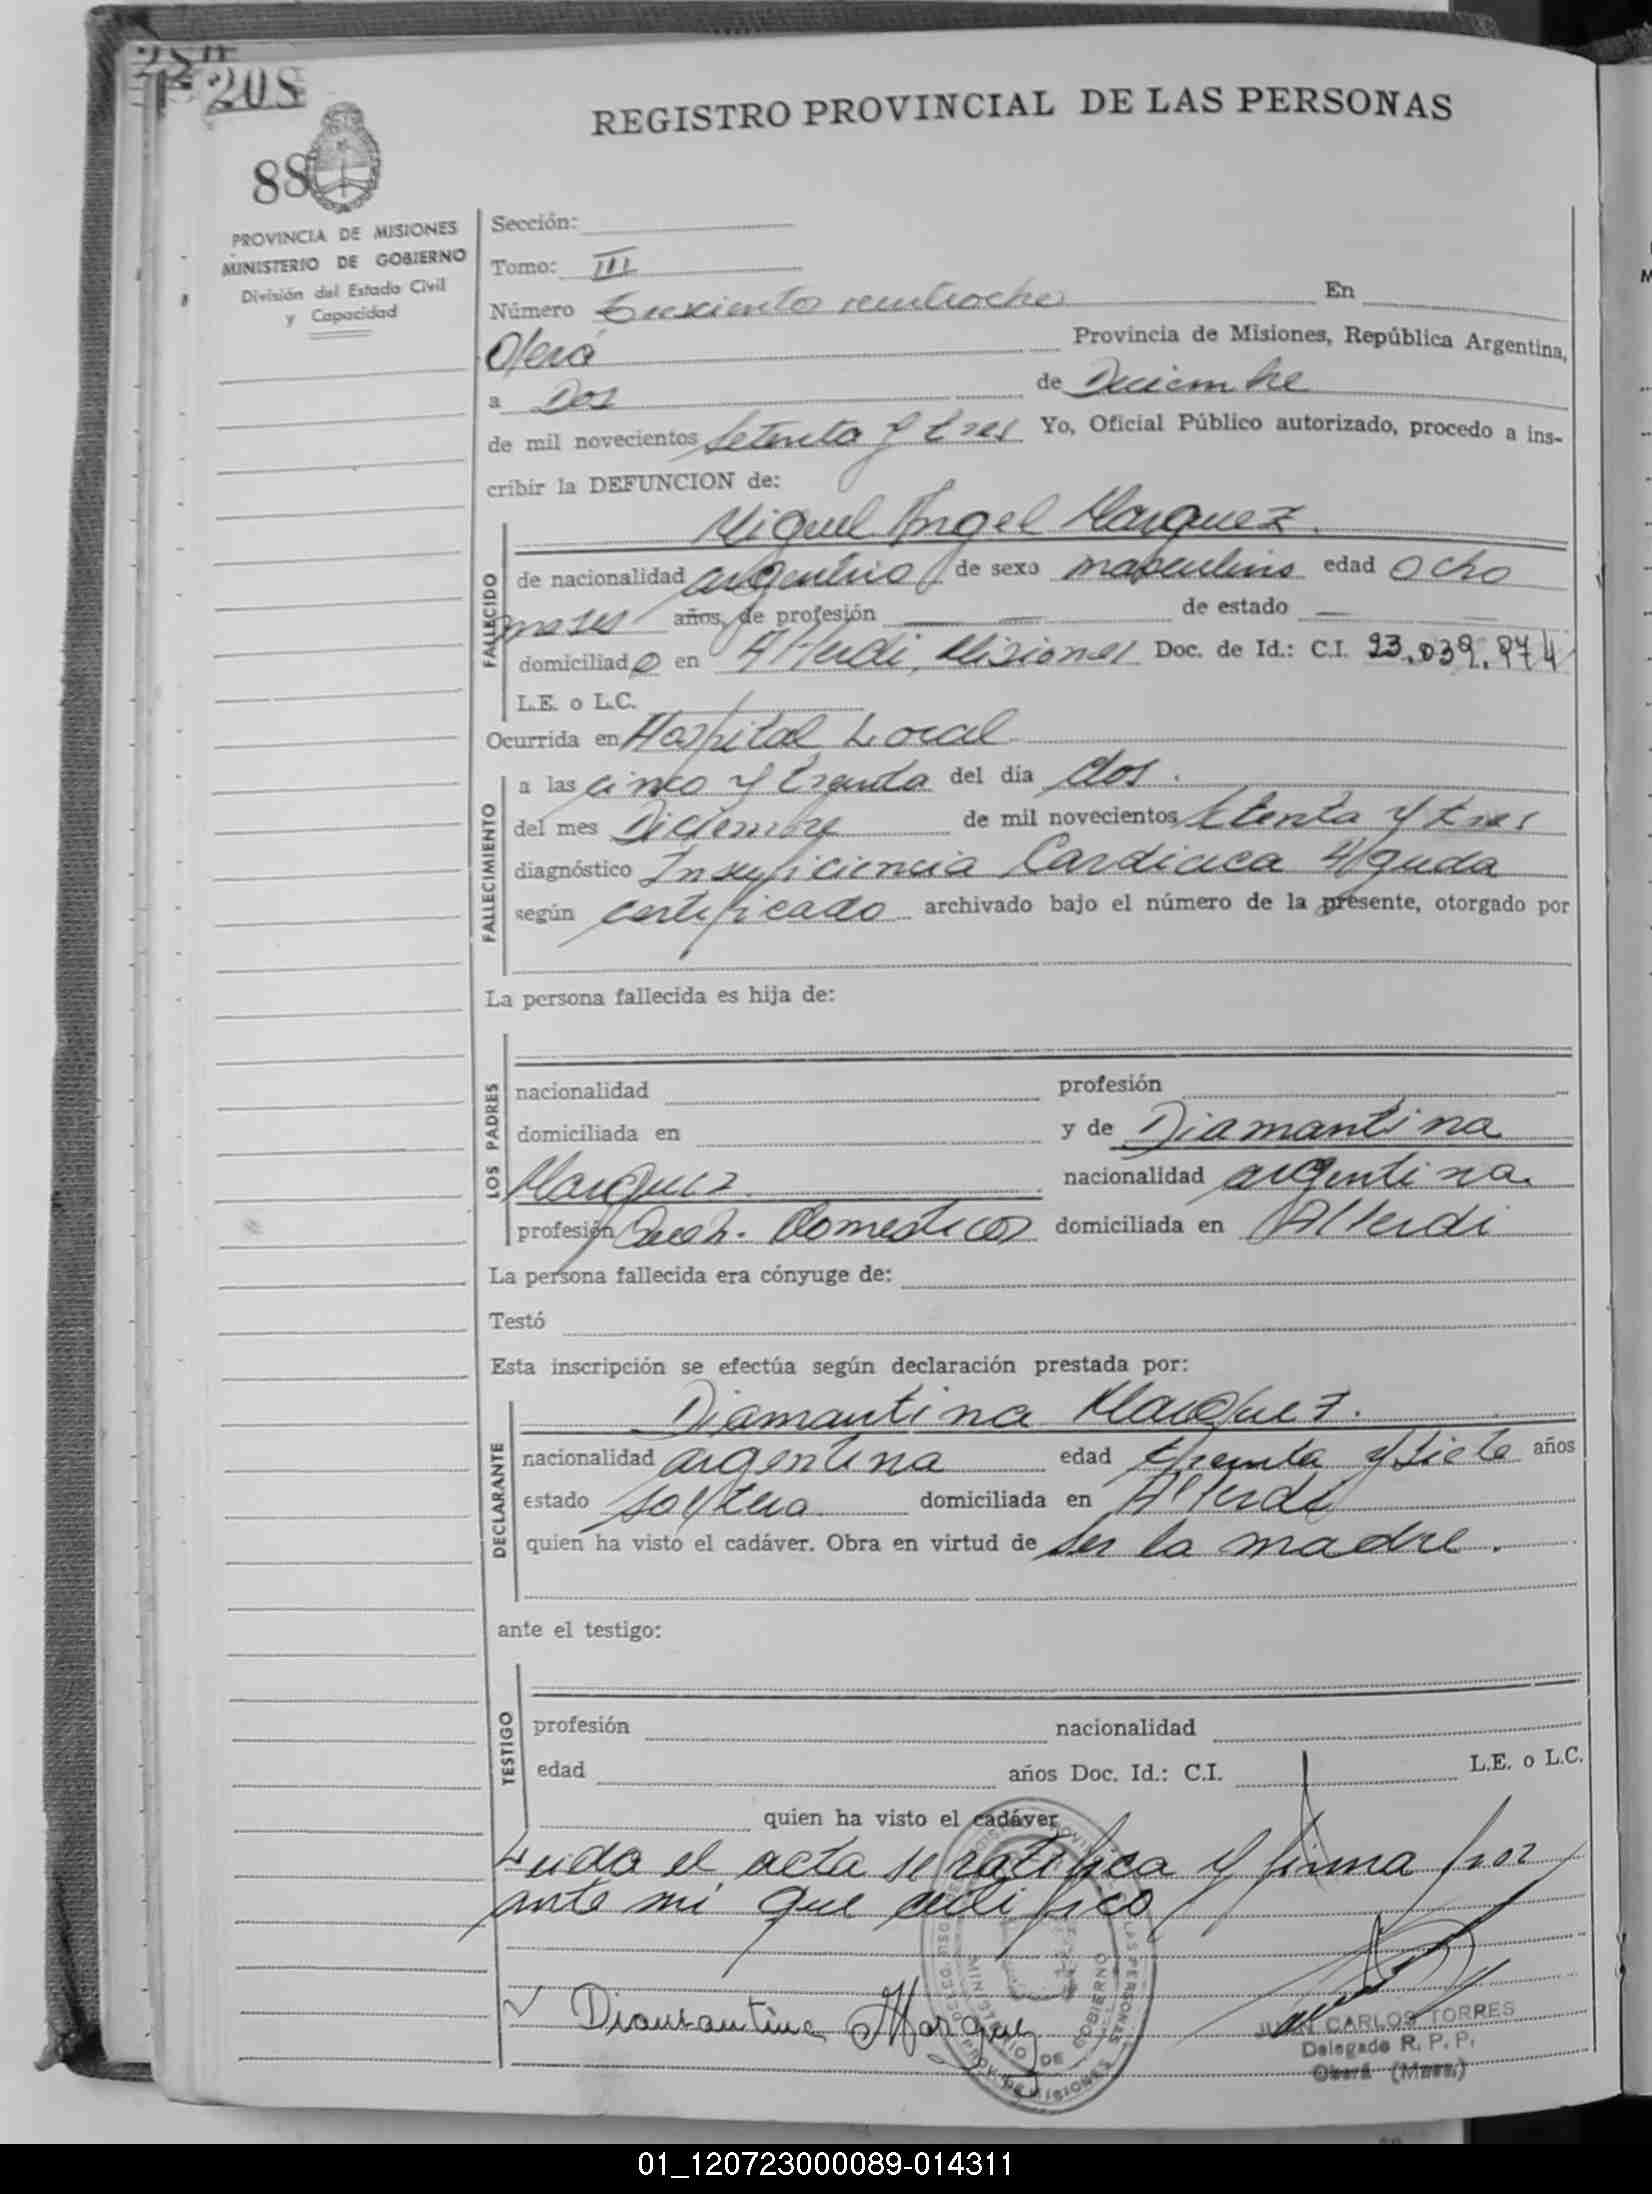 208
88
REGISTRO PROVINCIAL DE LAS PERSONAS
PROVINCIA DE MISIONES
MINISTERIO DE GOBIERNO
División del Estado Civil
y Capacidad
Sección:
Tomo: III
Número veintiocho En
Oberá Provincia de Misiones, República Argentina,
a Dos de Diciembre
de mil novecientos setenta y tres Yo, Oficial Público autorizado, procedo a ins-
cribir la DEFUNCION de:
Miguel Angel Marquez.
FALLECIDO
de nacionalidad argentino de sexo masculino edad ocho
meses años, de profesión de estado
domiciliado en Alberdi, Misiones Doc. de Id.: C.I. 23.039.974
L.E. o L.C.
Ocurrida en Hospital Local
FALLECIMIENTO
a las cinco y treinta del día dos.
del mes Diciembre de mil novecientos setenta y tres
diagnóstico Insuficiencia Cardiaca Aguda
según certificado archivado bajo el número de la presente, otorgado por
La persona fallecida es hija de:
LOS PADRES
nacionalidad profesión
domiciliada en y de Diamantina
Marquez nacionalidad argentina.
profesión Queh. Domesticos domiciliada en Alberdi
La persona fallecida era cónyuge de:
Testó
Esta inscripción se efectúa según declaración prestada por:
DECLARANTE
Diamantina Marquez.
nacionalidad argentina edad treinta y siete años
estado soltera domiciliada en Alberdi
quien ha visto el cadáver. Obra en virtud de ser la madre.
ante el testigo:
TESTIGO
profesión nacionalidad
edad años Doc. Id.: C.I. L.E. o L.C.
quien ha visto el cadáver
Leida el acta se ratifica y firma por
ante mi que certifico
Diamantina Marquez
MINISTERIO DE GOBIERNO
JUAN CARLOS TORRES
Delegado R. P. P.
Oberá (Mnes.)
01_120723000089-014311